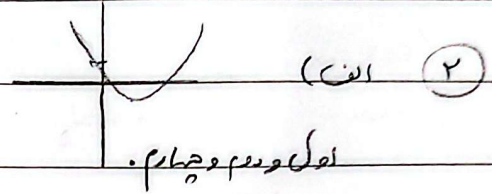 ۲ الف)
اول و دوم و چهارم.